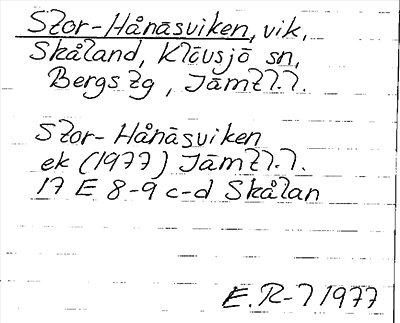 Stor-Hånäsviken, vik,
Skåland, Klövsjö sn,
Bergs tg, Jämtl.l.
Stor-Hånäsviken
ek (1977) Jämtl.l.
17 E 8-9 c-d Skålan
E.R-l 1977